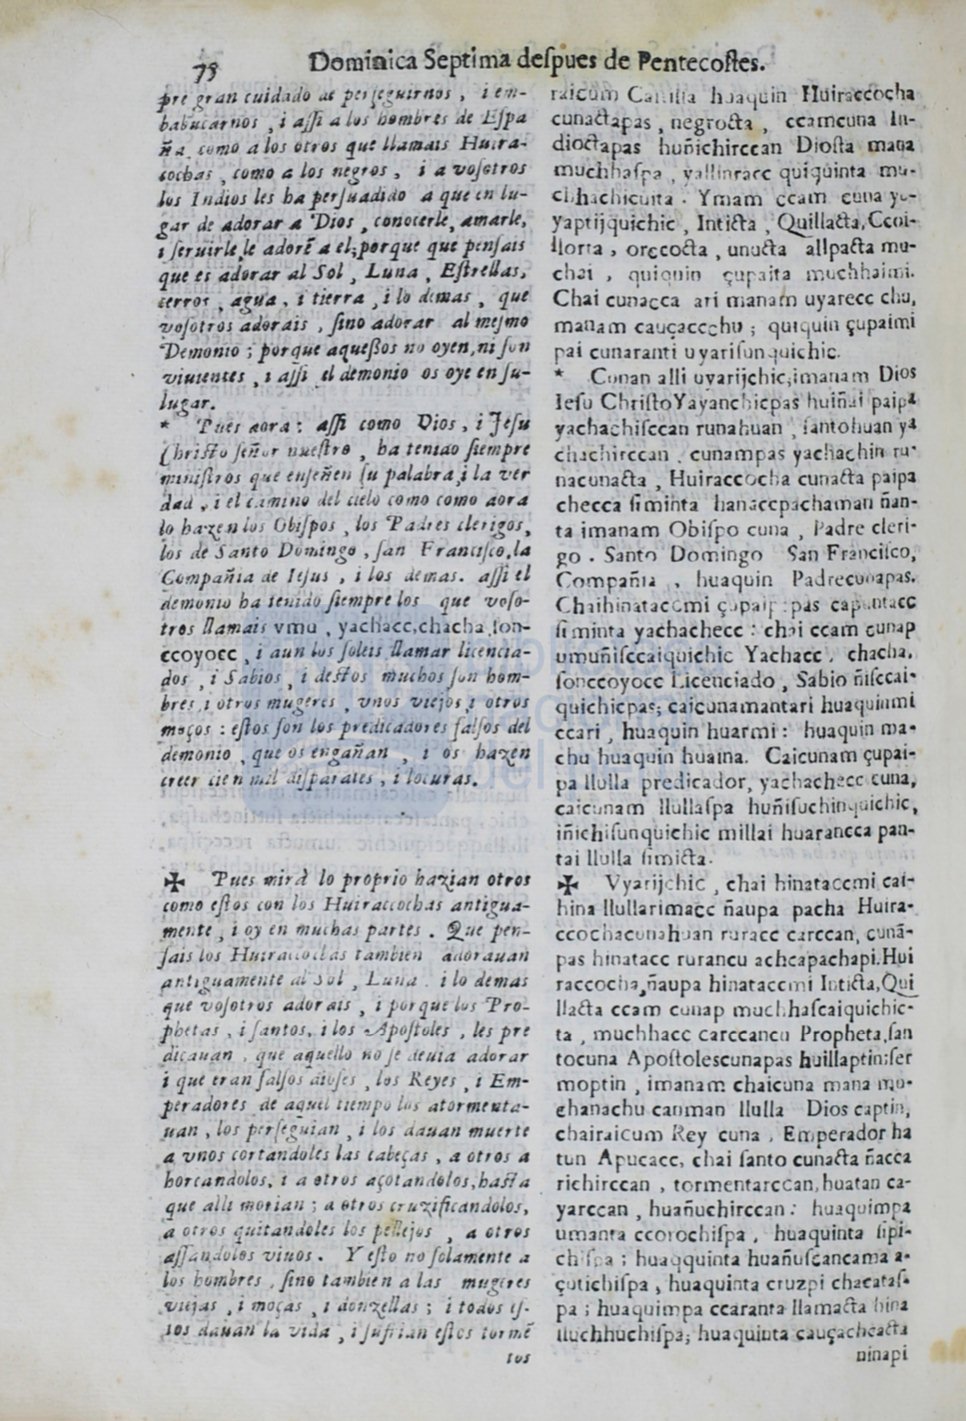 75 Dominica Septima deſpues de Pentecoſtes.
pre gran cuidado de perſeguirnos, i em-
babucarnos, i aſſi a los hombres de Eſpa
ña como a los otros que llamais Huira-
cochas, como a los negros, i a voſotros
los Indios les ha perſuadido a que en lu-
gar de adorar a Dios, conocerle, amarle,
i ſeruirle le adorẽ a el; porque que penſais
que es adorar al Sol, Luna, Eſtrellas,
cerros, agua, i tierra, i lo demas, que
voſotros adorais, ſino adorar al meſmo
Demonio; porque aqueſſos no oyen, ni ſon
viuientes, i aſſi el demonio os oye en ſu-
lugar.
* Pues aora: aſſi como Dios, i Jeſu
Chriſto ſeñor nueſtro, ha tenido ſiempre
miniſtros que enſeñen ſu palabra, i la ver
dad, i el camino del cielo como como aora
lo hazen los Obiſpos, los Padres clerigos,
los de Santo Domingo, ſan Franciſco, la
Compañia de Ieſus, i los demas. aſſi el
demonio ha tenido ſiempre los que voſo-
tros llamais vmu, yachacc, chacha, ſon-
ccoyocc, i aun los ſoleis llamar licencia-
dos, i Sabios, i deſtos muchos ſon hom-
bres, i otros mugeres, vnos viejos, i otros
moços: eſtos ſon los predicadores falſos del
demonio, que os engañan, i os hazen
creer cien mil diſparates, i locuras.
✠ Pues mirà lo proprio hazian otros
como eſtos con los Huiraccochas antigua-
mente, i oy en muchas partes. Que pen-
ſais los Huiraccochas tambien adorauan
antiguamente al Sol, Luna. i lo demas
que voſotros adorais, i porque los Pro-
phetas, i ſantos, i los Apoſtoles, les pre
dicauan, que aquello no ſe deuia adorar
i que eran falſos dioſes, los Reyes, i Em-
peradores de aquel tiempo los atormenta-
uan, los perſeguian, i los dauan muerte
a vnos cortandoles las cabeças, a otros a
horcandolos, i a otros açotandolos, haſta
que alli morian; a otros cruzificandolos,
a otros quitandoles los pellejos, a otros
aſſandolos viuos. Y eſto no ſolamente a
los hombres, ſino tambien a las mugeres
viejas, i moças, i donzellas; i todos eſ-
tos dauan la vida, i ſufrian eſtos tormẽ
tos
raicum Camilla huaquin Huiraccocha
cunactapas, negrocta, ccamcuna In-
dioctapas huñichirccan Dioſta mana
muchhaſpa, yallinracc quiquinta mu-
chhachicuita. Ymam ccam cuna yu-
yaptijquichic, Inticta, Quillacta, Ccoi-
llorta, orccocta, unucta allpacta mu-
chai, quiquin çupaita muchhaimi.
Chai cunacca ari manam uyarecc chu,
manam cauçaccchu; quiquin çupaimi
pai cunaranti uyariſunquichic.
* Cunan alli uyarijchic; imanam Dios
Ieſu Chriſto Yayanchicpas huiñai paipa
yachachiſccan runahuan, ſantohuan ya
chachirccan. cunampas yachachin ru-
nacunacta, Huiraccocha cunacta paipa
checca ſiminta hanaccpachaman ñan-
ta imanam Obiſpo cuna, Padre cleri-
go. Santo Domingo San Franciſco,
Compañia, huaquin Padrecunapas.
Chaihinataccmi çupaippas capuntacc
ſiminta yachachecc: chai ccam cunap
umuñiſccaiquichic Yachacc, chacha,
ſonccoyocc Licenciado, Sabio ñiſccai-
quichicpas; caicunamantari huaquinmi
ccari, huaquin huarmi: huaquin ma-
chu huaquin huaina. Caicunam çupai-
pa llulla predicador, yachachecc cuna,
caicunam llullaſpa huñiſuchinquichic,
iñichiſunquichic millai huarancca pan-
tai llulla ſimicta.
✠ Vyarijchic, chai hinataccmi cai-
hina llullarimacc ñaupa pacha Huira-
ccochacunahuan ruracc carccan, cunã-
pas hinatacc rurancu achcapachapi. Hui
raccocha, ñaupa hinataccmi Inticta, Qui
llacta ccam cunap muchhaſcaiquichic-
ta, muchhacc carccancu Propheta, ſan
tocuna Apoſtolescunapas huillaptin: ſer
moptin, imanam chaicuna mana mu-
chanachu canman llulla Dios captin,
chairaicum Rey cuna, Emperador ha
tun Apucacc, chai ſanto cunacta ñacca
richirccan, tormentarccan, huatan ca-
yarccan, huañuchirccan: huaquimpa
umanta ccorochiſpa, huaquinta ſipi-
chiſpa; huaqquinta huañuſcancama a-
çutichiſpa, huaquinta cruzpi chacataſ-
pa; huaquimpa ccaranta llamacta hina
lluchhuchiſpa; huaquinta cauçachcacta
ninapi